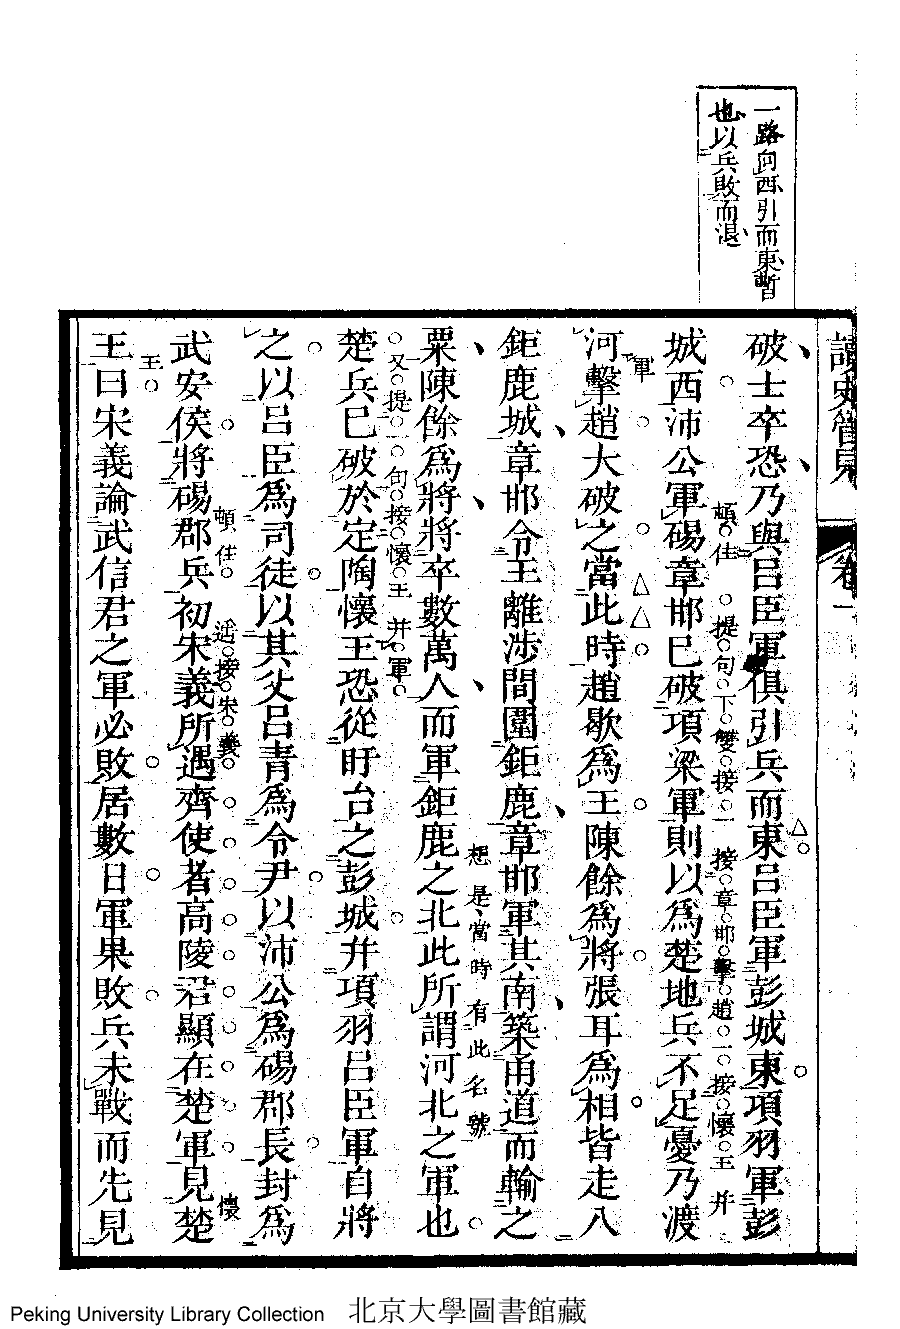 讀史管見 卷一
一路向西引而東暫
也以兵敗而退
破士卒恐乃與吕臣軍俱引兵而東吕臣軍彭城東項羽軍彭
頓住 提句下雙接一接章邯擊趙一接懷王并
城西沛公軍碭章邯已破項梁軍則以爲楚地兵不足憂乃渡
軍
河擊趙大破之當此時趙歇爲王陳餘爲將張耳爲相皆走入
鉅鹿城章邯令王離涉間圍鉅鹿章邯軍其南築甬道而輸之
想是當時有此名號
粟陳餘爲將將卒數萬人而軍鉅鹿之北此所謂河北之軍也
又提一句接懷王并軍
楚兵已破於定陶懷王恐從盱台之彭城并項羽吕臣軍自將
之以吕臣爲司徒以其父吕青爲令尹以沛公爲碭郡長封爲
頓住 遥接宋義 懷
武安侯將碭郡兵初宋義所遇齊使者高陵君顯在楚軍見楚
王
王曰宋義論武信君之軍必敗居數日軍果敗兵未戰而先見
Peking University Library Collection 北京大學圖書館藏